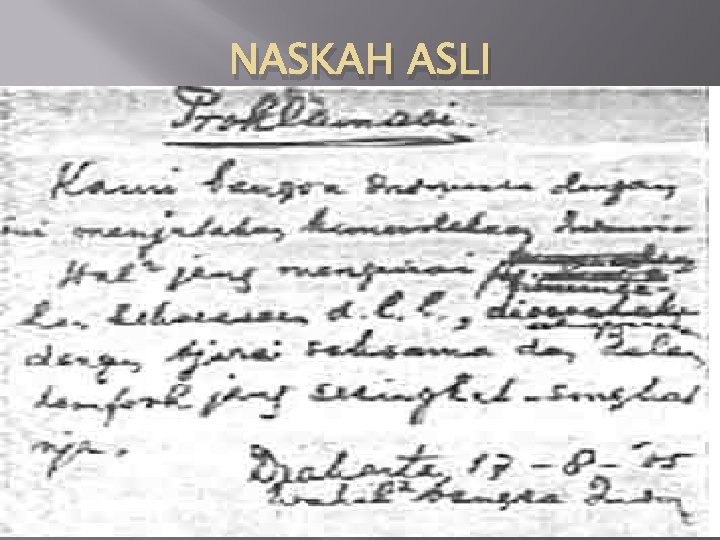 NASKAH ASLI
Proklamasi.
Kami bangsa Indonesia dengan
ini menjatakan kemerdekaan Indonesia.
Hal² jang mengenai
kan kekoeasaan d.l.l., diselenggarakan
dengan tjara saksama dan dalam
tempoh jang sesingkat-singkat
nja.
Djakarta, 17-8-'05
Wakil² bangsa Indon